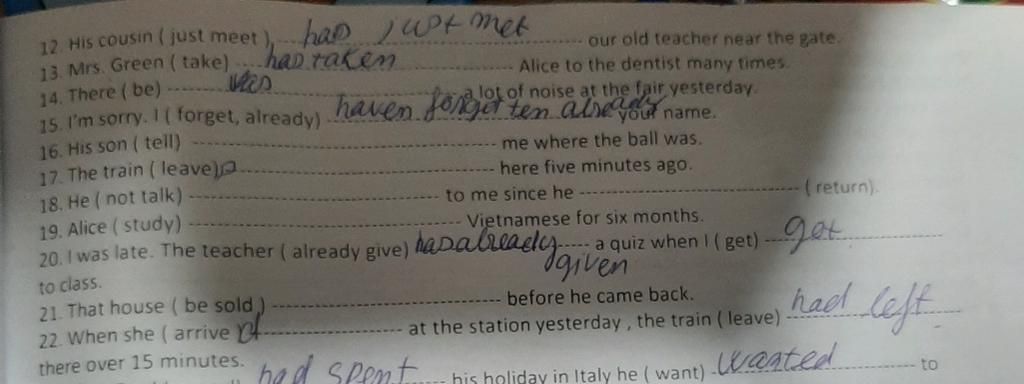 12. His cousin ( just meet ) had just met our old teacher near the gate.
13. Mrs. Green ( take) has taken Alice to the dentist many times.
14. There ( be) was a lot of noise at the fair yesterday.
15. I'm sorry. I ( forget, already) haven forgotten already your name.
16. His son ( tell) ---------- me where the ball was.
17. The train ( leave) ---------- here five minutes ago.
18. He ( not talk) ---------- to me since he ---------- ( return).
19. Alice ( study) ---------- Vietnamese for six months.
20. I was late. The teacher ( already give) has already given a quiz when I ( get) got
to class.
21. That house ( be sold ) ---------- before he came back.
22. When she ( arrive ---------- at the station yesterday , the train ( leave) had left
there over 15 minutes.
had spent his holiday in Italy he ( want) wanted to